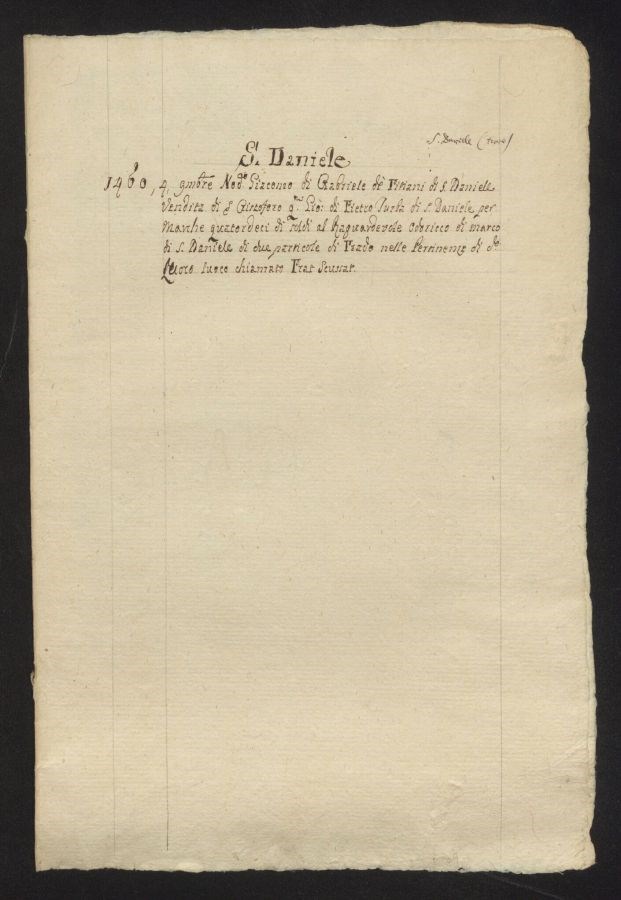 S. Daniele (terre)
S. Daniele
1460, 4, 9mbre Nod.o Giacomo di Gabriele de Pitiani di S. Daniele
Vendita di S. Cristoforo q.m Gio: di Pietro di S. Daniele per
Marche quatordeci di soldi al Odorico di Marco
di S. Daniele di due particole di Prado nelle Pertinenze di d.o
Luoco luoco chiamato Prat